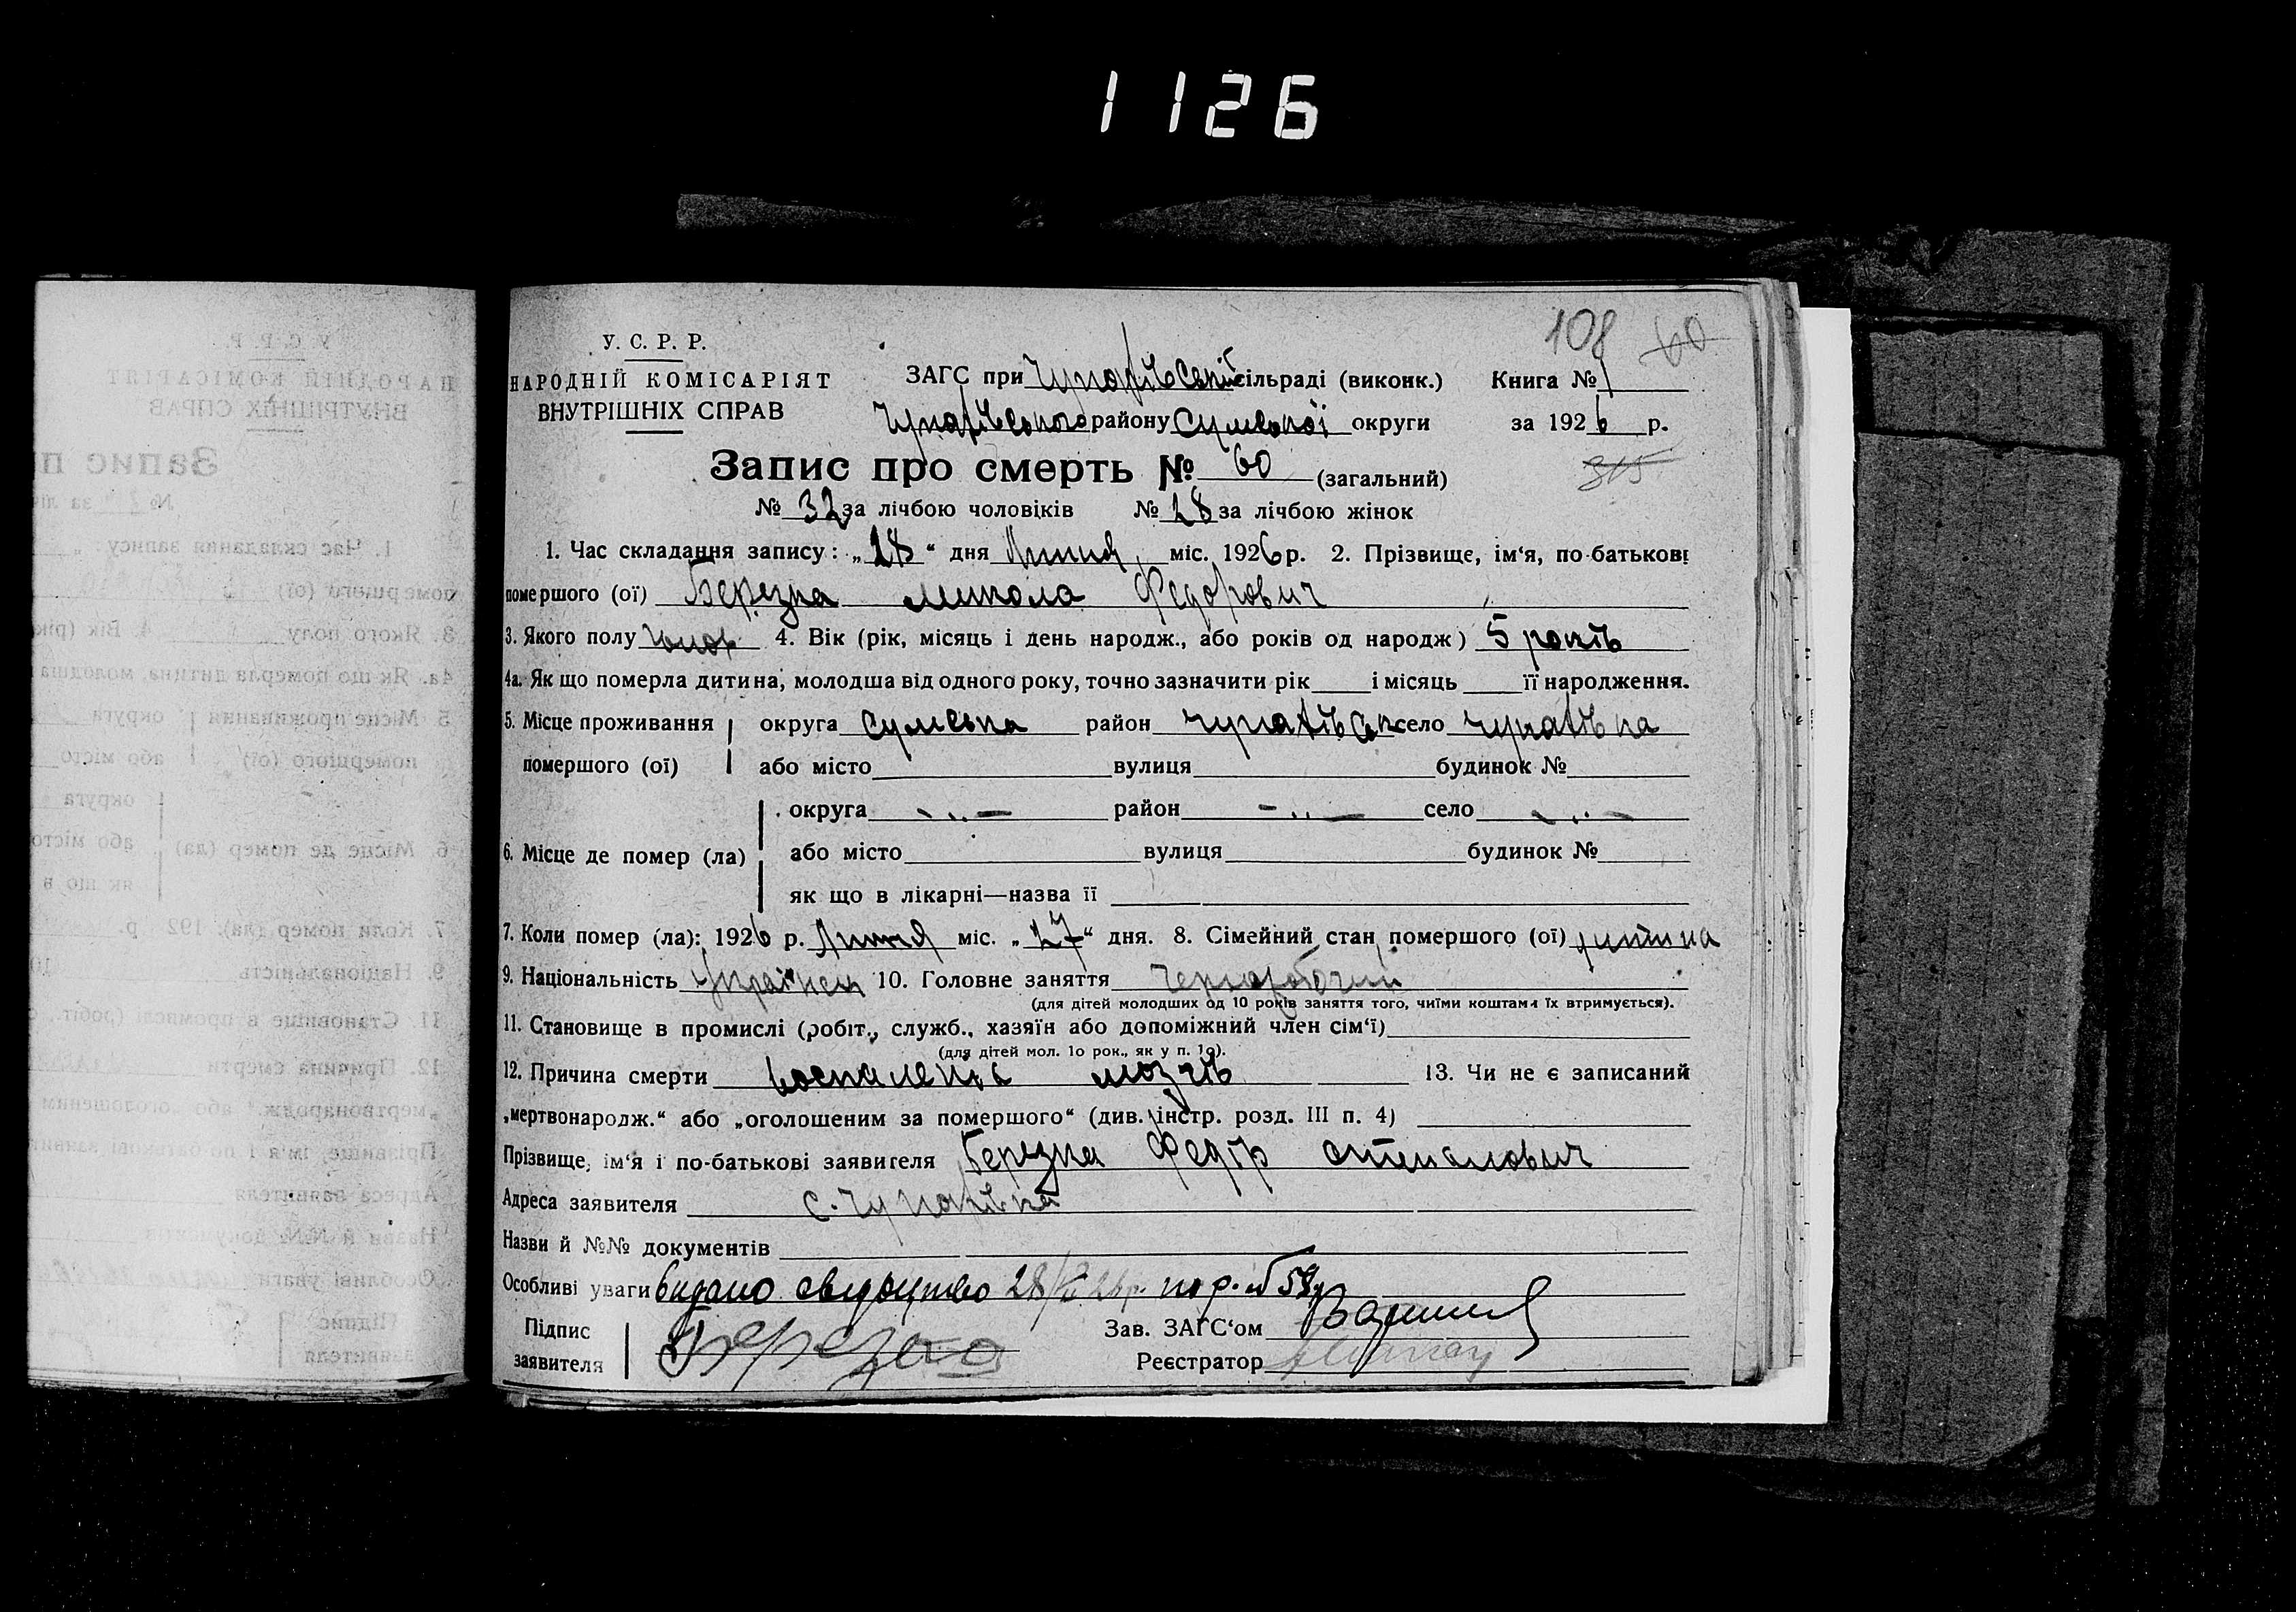 1126
108 60
У. С. Р. Р.
НАРОДНІЙ КОМІСАРІЯТ
ВНУТРІШНІХ СПРАВ
ЗАГС при Чупахівській сільраді (виконк.) Книга № 1
Чупахівського району Сумської округи за 1926 р.
Запис про смерть № 60 (загальний)
315
№ 32 за лічбою чоловіків № 28 за лічбою жінок
1. Час складання запису: „28“ дня Липня міс. 1926 р. 2. Прізвище, ім‘я, по-батькові
помершого (ої) Березка Микола Федорович
3. Якого полу чолов. 4. Вік (рік, місяць і день народж., або років од народж) 5 років
4а. Як що померла дитина, молодша від одного року, точно зазначити рік і місяць її народження.
5. Місце проживання округа Сумська район Чупахівськ село Чупахівка
помершого (ої) або місто вулиця будинок №
округа - „ - район - „ - село - „ -
6. Місце де помер (ла) або місто вулиця будинок №
як що в лікарні—назва її
7. Коли помер (ла): 1926 р. Липня міс. „27“ дня. 8. Сімейний стан помершого (ої) дитина
9. Національність Українец 10. Головне заняття Чернороб
(для дітей молодших од 10 років заняття того, чиїми коштами їх втримується).
11. Становище в промислі (робіт., служб., хазяїн або допоміжний член сім‘ї)
(для дітей мол. 10 рок., як у п. 10).
12. Причина смерти воспаленіє мозгів 13. Чи не є записаний
„мертвонародж.“ або „оголошеним за помершого“ (див. інстр. розд. III п. 4)
Прізвище, ім‘я і по-батькові заявителя Березка Федір Степанович
Адреса заявителя с. Чупахівка
Назви й №№ документів
Особливі уваги Видано свидоцтво 28/VII 26 р. по р. № 58
Підпис
заявителя Березка
Зав. ЗАГС‘ом
Реєстратор